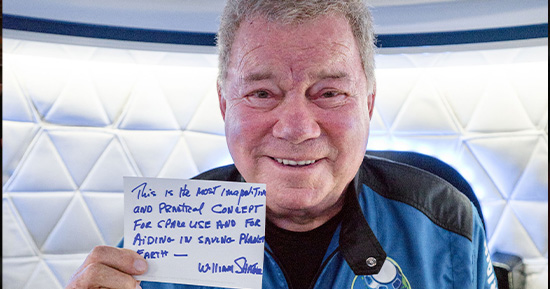 This is the most imaginative
AND PRACTICAL CONCEPT
FOR SPACE USE AND FOR
AIDING IN SAVING PLANET
EARTH —
William Shatner